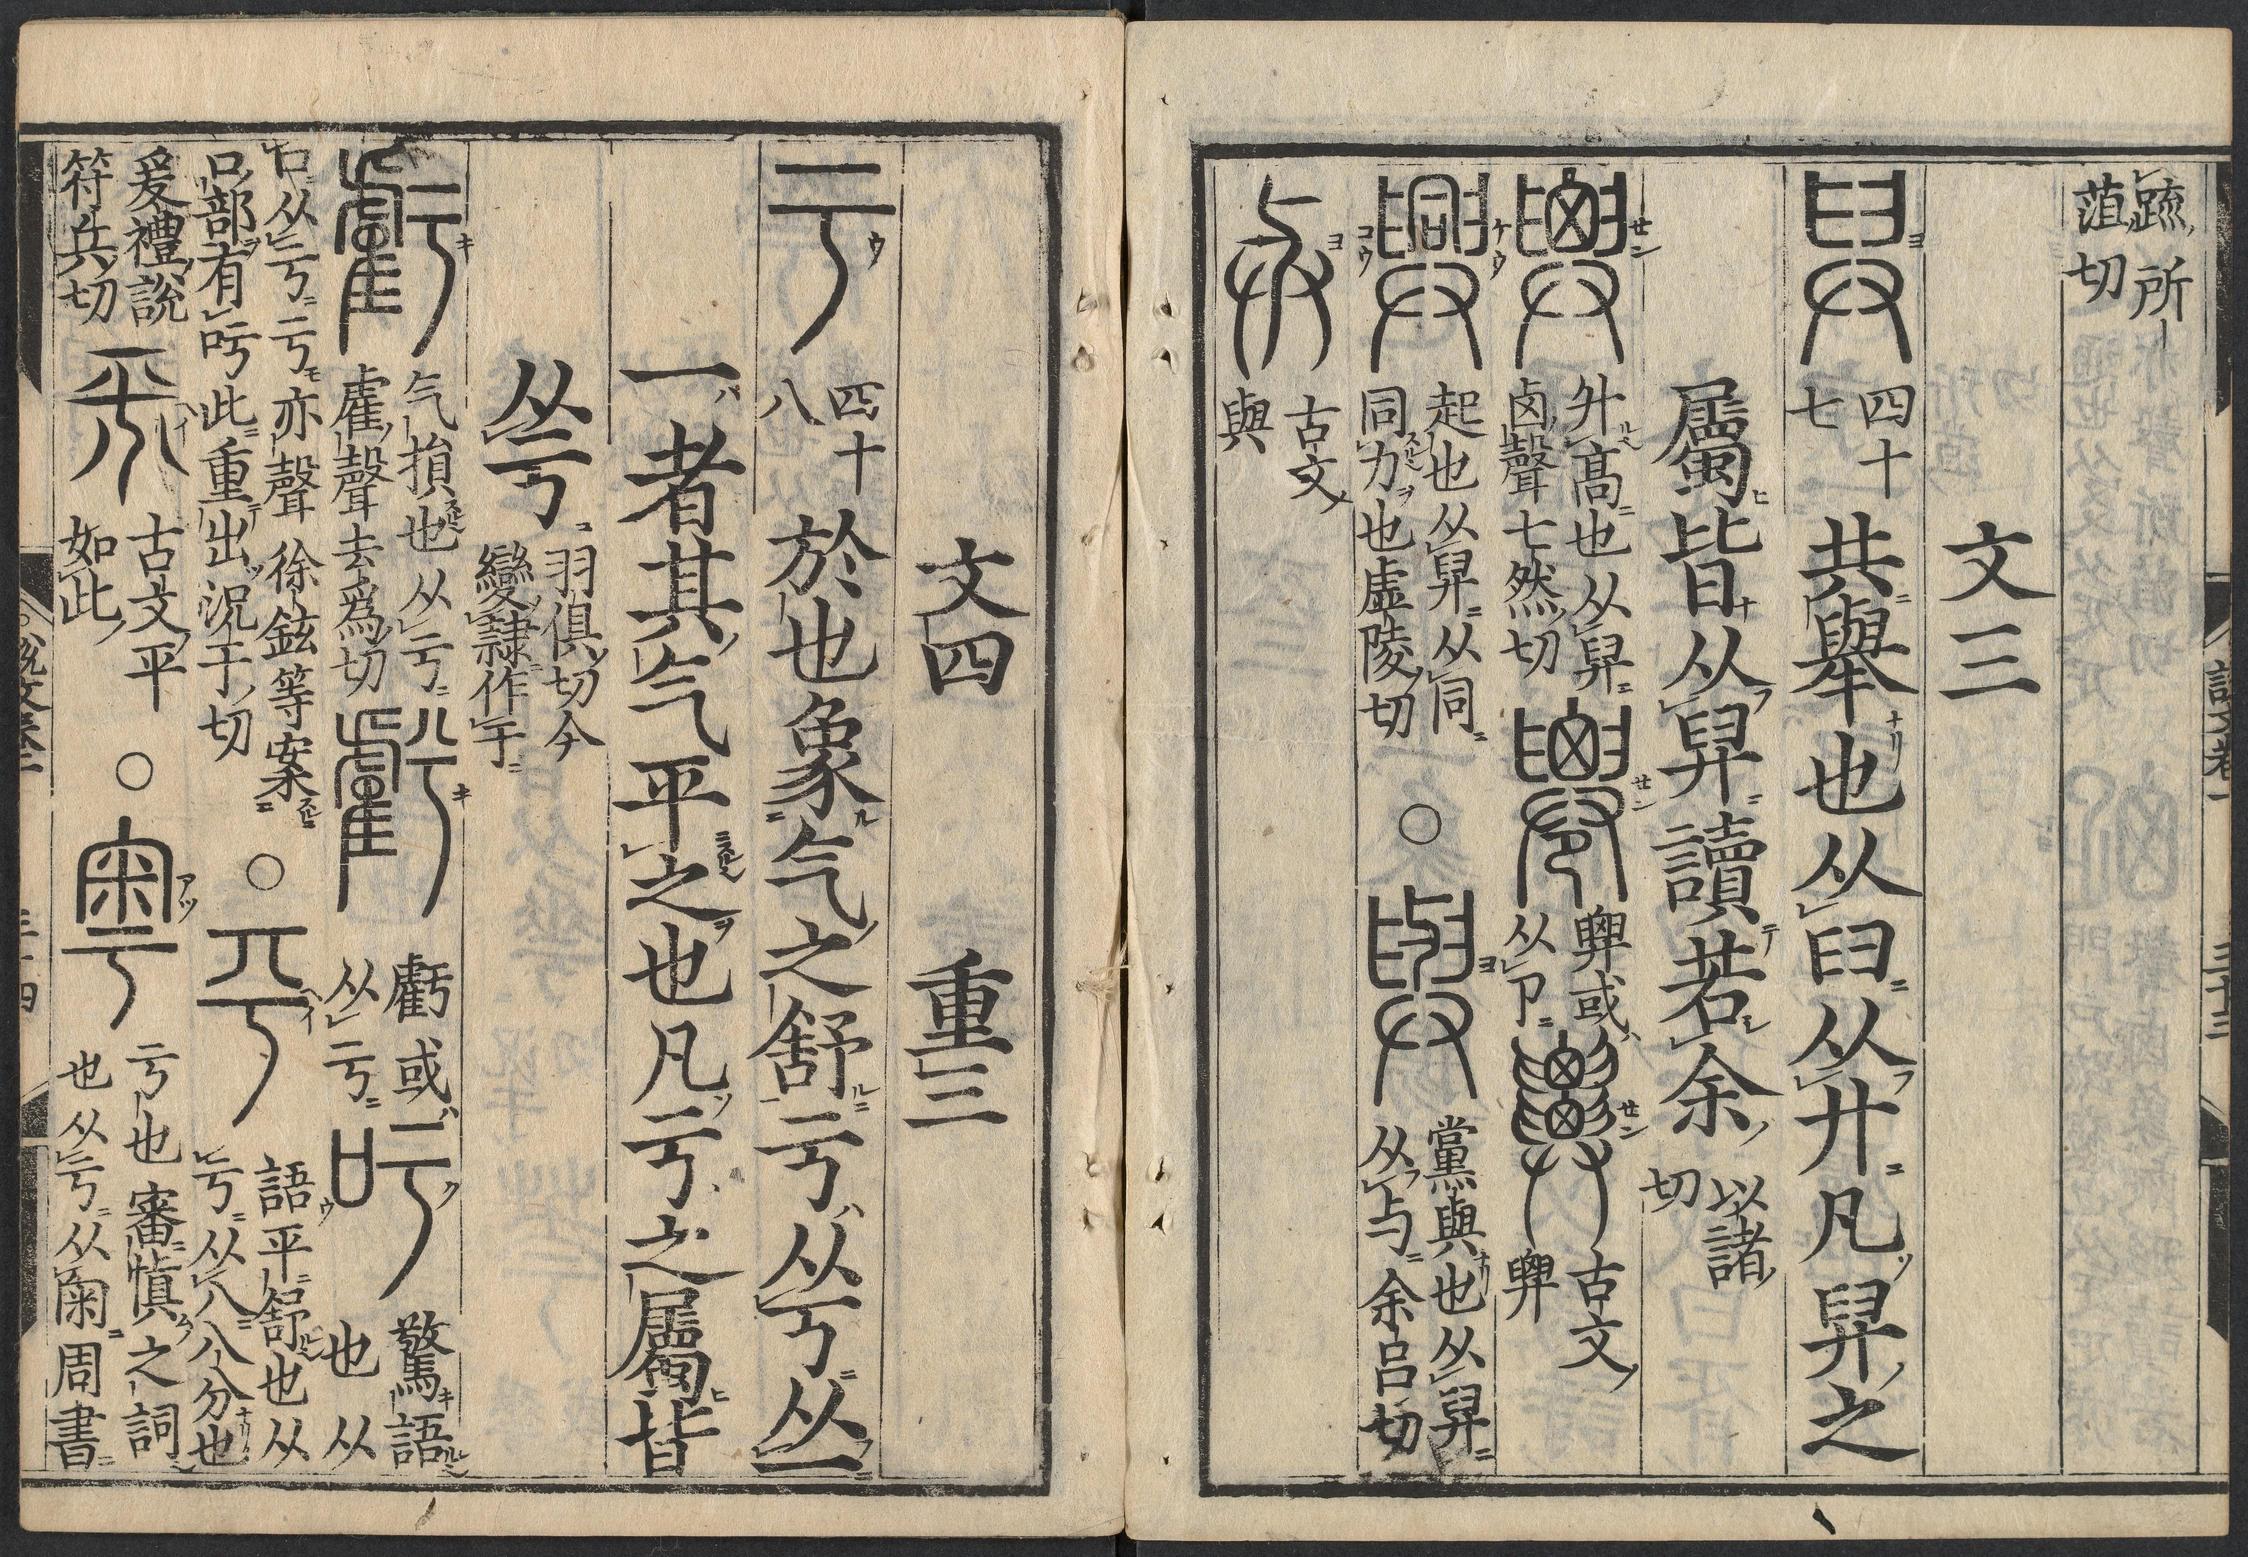 疏所
葅切
文三
四十
七
共舉也从𦥑从廾凡舁之
屬皆从舁讀若余
以諸
切
升高也从舁
囟聲七然切
䙴或
从卪
古文
䙴
起也从舁从同
同力也虛陵切
○
黨與也从舁
从与余呂切
古文
與
文四 重三
四十
八
於也象气之舒亏从丂从一
一者其气平之也凡亏之屬皆
从亏
羽俱切今
變隷作于
气損也从亏
雐聲去爲切
虧或
从亏
驚語
也从
口从亏亏亦聲徐鉉等案
口部有吁此重出況于切
○
語平舒也从
亏从八八分也
爰禮說
符兵切
古文平
如此
○
亏也審愼之詞
也从亏从宷周書
說文卷一 三十三
說文卷二 三十四